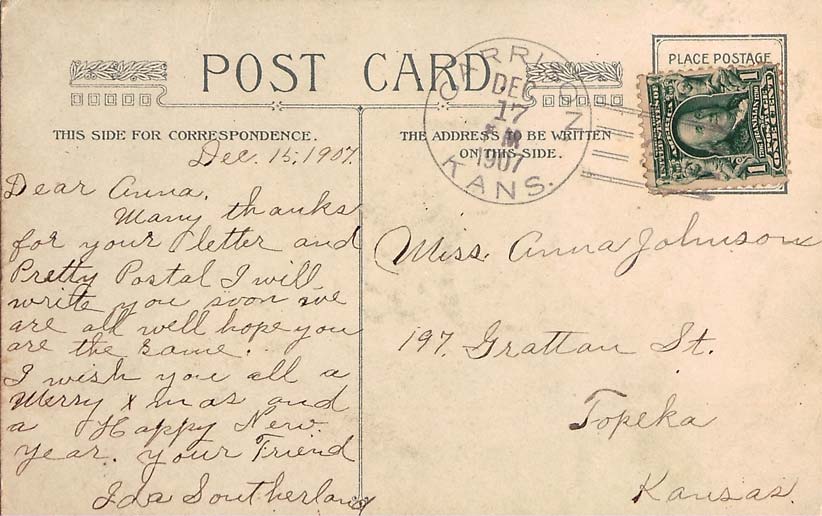 POST CARD
PLACE POSTAGE
GARRISON
DEC
17
1907
KANS.
THIS SIDE FOR CORRESPONDENCE.
THE ADDRESS TO BE WRITTEN
ON THIS SIDE.
ONE CENT
Dec. 15, 1907.
Dear Anna,
Many thanks
for your letter and
Pretty Postal I will
write you soon we
are all well hope you
are the same.
I wish you all a
Merry X mas and
a Happy New
Year. your Friend
Ida Southerland
Miss. Anna Johnson
197. Grattan St.
Topeka
Kansas.